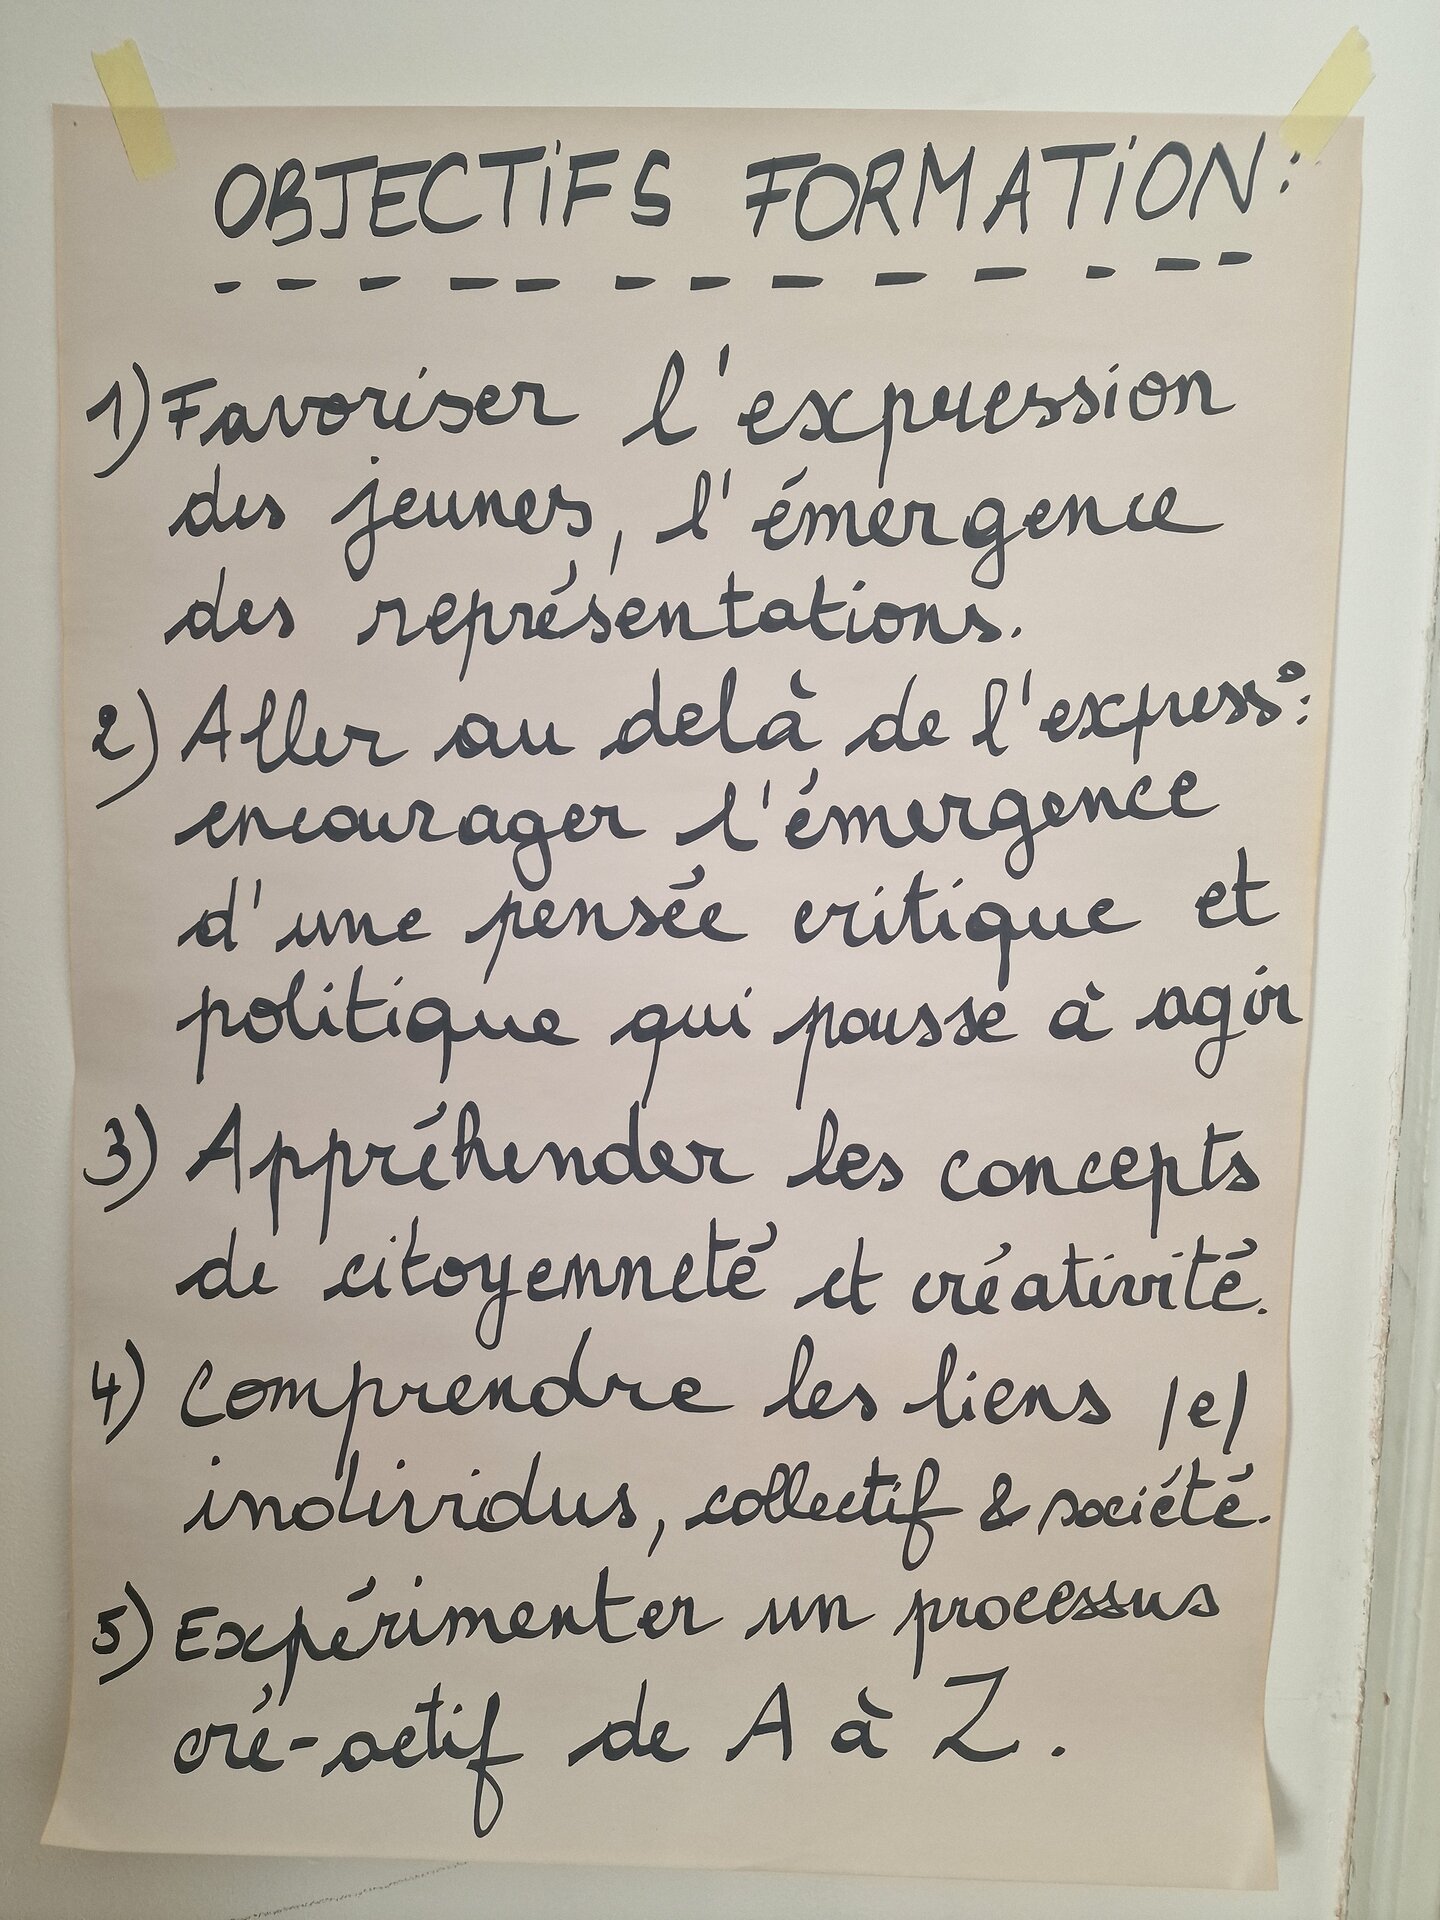 OBJECTIFS FORMATION:
1) Favoriser l'expression
des jeunes, l'émergence
des représentations.
2) Aller au delà de l'express°:
encourager l'émergence
d'une pensée critique et
politique qui pousse à agir
3) Appréhender les concepts
de citoyenneté et créativité.
4) Comprendre les liens /e/
individus, collectif & société.
5) Expérimenter un processus
cré-actif de A à Z.